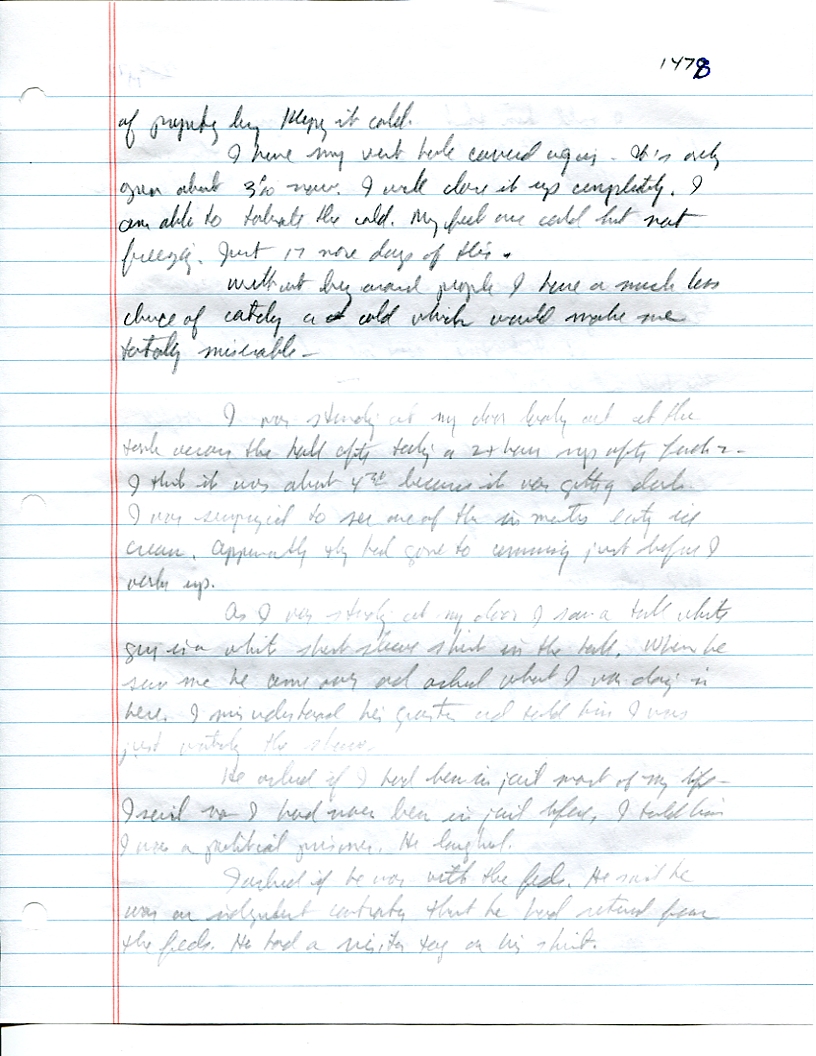 1478
of property by keeping it cold.
I have my vent hole covered again. It is only
open about 3% now. I will close it up completely. I
am able to tolerate the cold. My feet are cold but not
freezing. Just 17 more days of this.
Without being around people I have a much less
chance of catching a cold which would make me
totally miserable.
I was standing at my door looking out at the
tank across the hall after taking a 2+ hour nap after lunch.
I think it was about 4 because it was getting dark.
I was surprised to see one of the inmates eating ice
cream. Apparently they had gone to commissary just before I
woke up.
As I was standing at my door I saw a tall white
guy in a white short sleeve shirt in the hall. When he
saw me he came over and asked what I was doing in
here. I misunderstand his question and told him I was
just watching the
He asked if I had been in jail most of my life.
I said no I had never been in jail before. I told him
I was a political prisoner. He laughed.
I asked if he was with the feds. He said he
was an independent contractor that he had retired from
the feds. He had a visitor tag on his shirt.